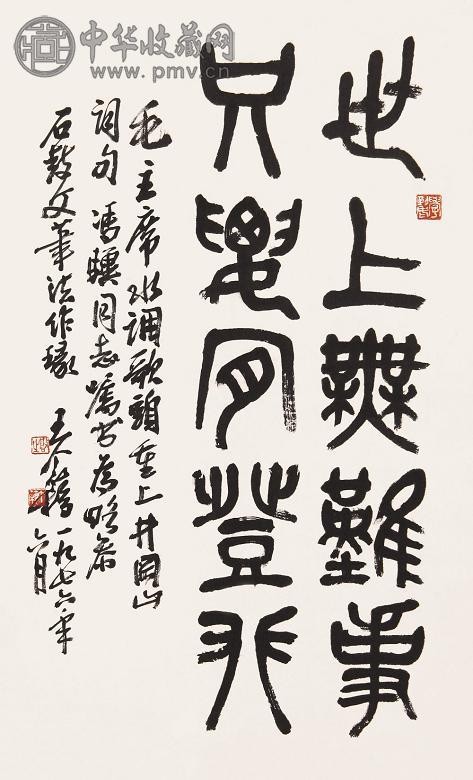 中华收藏网
www.pmv.cn
世上無難事
只要肯登攀
毛主席水调歌頭重上井岡山
詞句馮驥同志囑書為略參
石鼓文筆法作篆王个簃一九七六年
六月